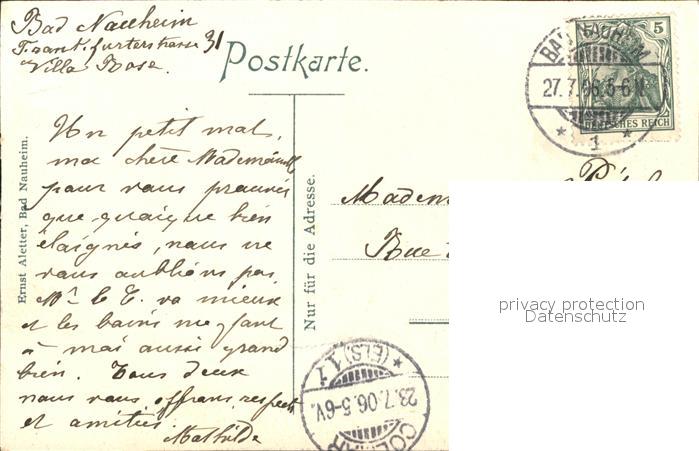 Bad Nauheim
Frankfurterstrasse 31
Villa Rose.
Postkarte.
5
BAD NAUHEIM
27.7.06.5-6N.
DEUTSCHES REICH
* 1 *
Un petit mot,
ma chère Mademoiselle
pour vous prouver
que quoique bien
éloignés, nous ne
vous oublions pas.
Mr. le C. va mieux
et les bains me font
à moi aussi grand
bien. Tous deux
nous vous offrons respects
et amitiés.
Mathilde
Ernst Aletter, Bad Nauheim.
Nur für die Adresse.
Madem
Rue
* (ELS) 1 1
23.7.06.5-6V.
COLMAR
privacy protection
Datenschutz